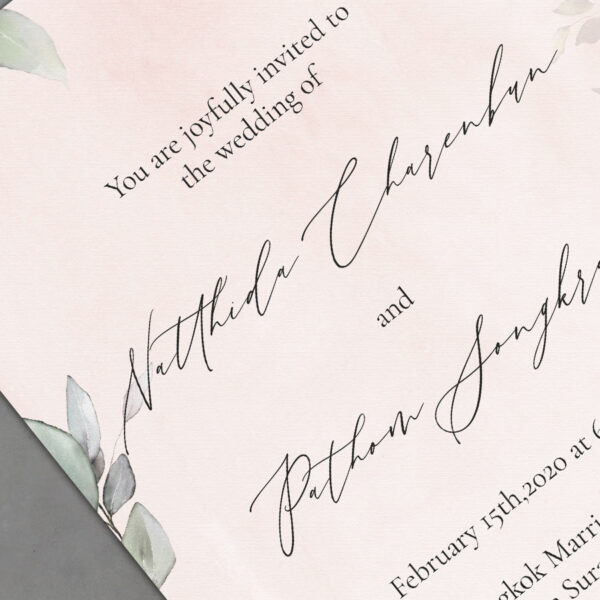 You are joyfully invited to
the wedding of
Natthida Charenbun
and
Pathom Songkra
February 15th,2020 at 6
gkok Marri
Sura